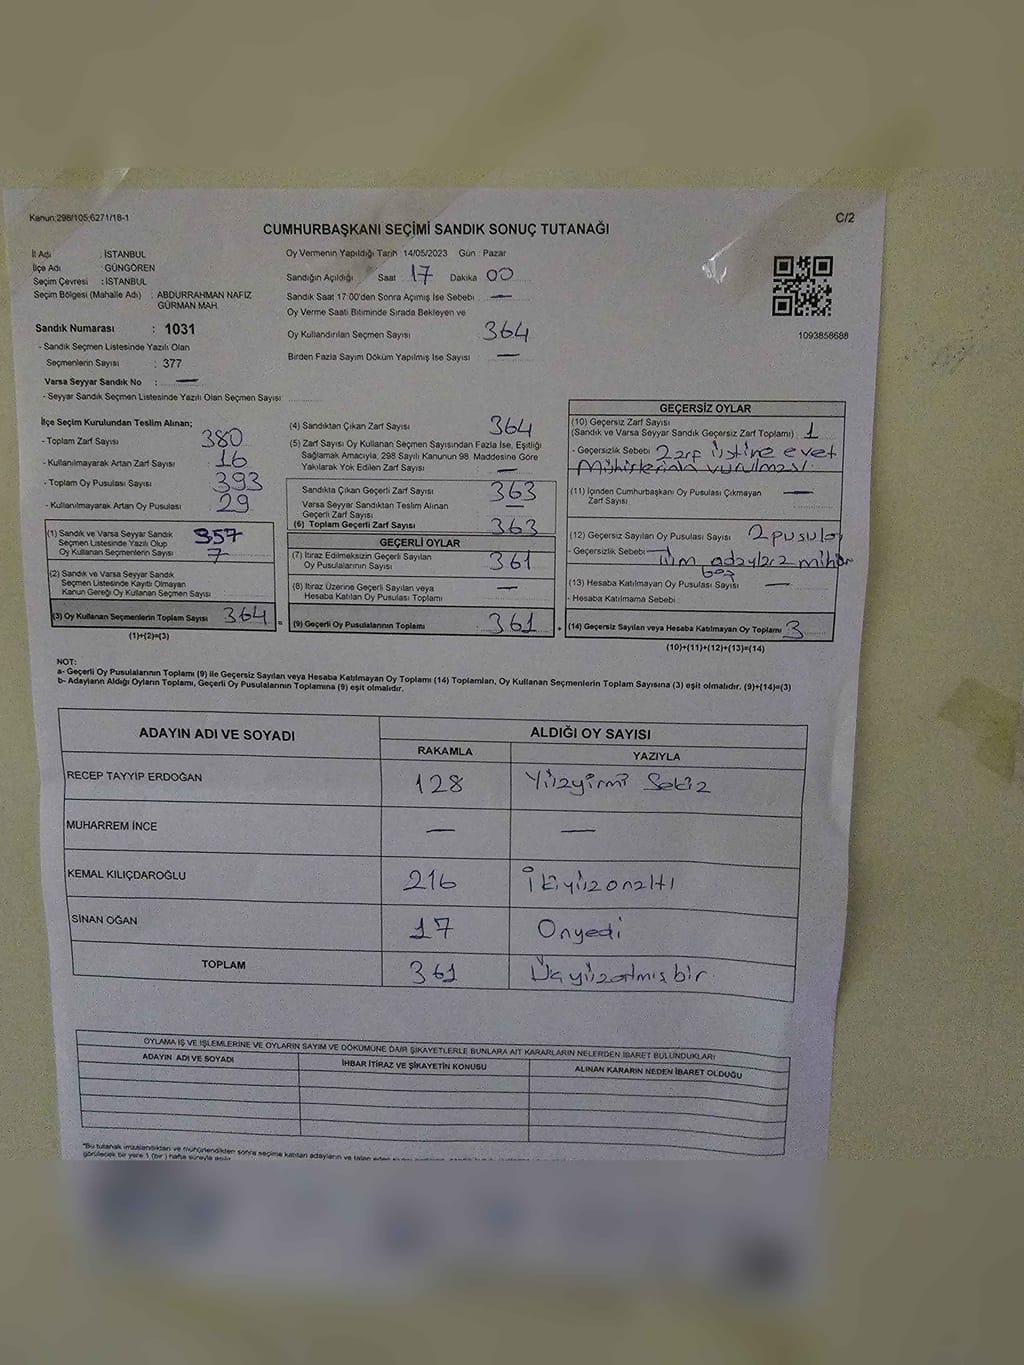 Kanun:298/105;6271/18-1
C/2
CUMHURBAŞKANI SEÇİMİ SANDIK SONUÇ TUTANAĞI
İl Adı : İSTANBUL
İlçe Adı : GÜNGÖREN
Seçim Çevresi : İSTANBUL
Seçim Bölgesi (Mahalle Adı) : ABDURRAHMAN NAFIZ
GÜRMAN MAH.
Sandık Numarası : 1031
- Sandık Seçmen Listesinde Yazılı Olan
Seçmenlerin Sayısı : 377
Varsa Seyyar Sandık No : —
- Seyyar Sandık Seçmen Listesinde Yazılı Olan Seçmen Sayısı:
Oy Vermenin Yapıldığı Tarih 14/05/2023 Gün : Pazar
Sandığın Açıldığı Saat 17 Dakika 00
Sandık Saat 17:00'den Sonra Açımış İse Sebebi —
Oy Verme Saati Bitiminde Sırada Bekleyen ve
Oy Kullandırılan Seçmen Sayısı 364
Birden Fazla Sayım Döküm Yapılmış İse Sayısı —
1093858688
İlçe Seçim Kurulundan Teslim Alınan;
- Toplam Zarf Sayısı 380
- Kullanılmayarak Artan Zarf Sayısı 16
- Toplam Oy Pusulası Sayısı 393
- Kullanılmayarak Artan Oy Pusulası 29
(1) Sandık ve Varsa Seyyar Sandık 357
Seçmen Listesinde Yazılı Olup
Oy Kullanan Seçmenlerin Sayısı 7
(2) Sandık ve Varsa Seyyar Sandık
Seçmen Listesinde Kayıtlı Olmayan
Kanun Gereği Oy Kullanan Seçmen Sayısı :
(3) Oy Kullanan Seçmenlerin Toplam Sayısı 364
(1)+(2)=(3)
(4) Sandıktan Çıkan Zarf Sayısı 364
(5) Zarf Sayısı Oy Kullanan Seçmen Sayısından Fazla İse, Eşitliği
Sağlamak Amacıyla, 298 Sayılı Kanunun 98. Maddesine Göre
Yakılarak Yok Edilen Zarf Sayısı : —
Sandıkta Çıkan Geçerli Zarf Sayısı 363
Varsa Seyyar Sandıktan Teslim Alınan
Geçerli Zarf Sayısı —
(6) Toplam Geçerli Zarf Sayısı 363
GEÇERLİ OYLAR
(7) İtiraz Edilmeksizin Geçerli Sayılan
Oy Pusulalarının Sayısı : 361
(8) İtiraz Üzerine Geçerli Sayılan veya
Hesaba Katılan Oy Pusulası Toplamı : —
= (9) Geçerli Oy Pusulalarının Toplamı : 361
GEÇERSİZ OYLAR
(10) Geçersiz Zarf Sayısı
(Sandık ve Varsa Seyyar Sandık Geçersiz Zarf Toplamı) : 1
- Geçersizlik Sebebi : Zarf üstüne evet
Mühürlerinin vurulması.
(11) İçinden Cumhurbaşkanı Oy Pusulası Çıkmayan
Zarf Sayısı : —
(12) Geçersiz Sayılan Oy Pusulası Sayısı : 2 pusula
- Geçersizlik Sebebi : Tüm adaylara mühür
(13) Hesaba Katılmayan Oy Pusulası Sayısı : —
- Hesaba Katılmama Sebebi :
+ (14) Geçersiz Sayılan veya Hesaba Katılmayan Oy Toplamı 3
(10)+(11)+(12)+(13)=(14)
NOT:
a- Geçerli Oy Pusulalarının Toplamı (9) ile Geçersiz Sayılan veya Hesaba Katılmayan Oy Toplamı (14) Toplamları, Oy Kullanan Seçmenlerin Toplam Sayısına (3) eşit olmalıdır. (9)+(14)=(3)
b- Adayların Aldığı Oyların Toplamı, Geçerli Oy Pusulalarının Toplamına (9) eşit olmalıdır.
ADAYIN ADI VE SOYADI
ALDIĞI OY SAYISI
RAKAMLA YAZIYLA
RECEP TAYYIP ERDOĞAN 128 Yüzyirmi Sekiz
MUHARREM İNCE — —
KEMAL KILIÇDAROĞLU 216 İkiyüzonaltı
SİNAN OĞAN 17 Onyedi
TOPLAM 361 Üçyüzatmışbir
OYLAMA İŞ VE İŞLEMLERİNE VE OYLARIN SAYIM VE DÖKÜMÜNE DAİR ŞİKAYETLERLE BUNLARA AİT KARARLARIN NELERDEN İBARET BULUNDUKLARI
ADAYIN ADI VE SOYADI
İHBAR İTİRAZ VE ŞİKAYETİN KONUSU
ALINAN KARARIN NEDEN İBARET OLDUĞU
"Bu tutanak imzalandıktan ve mühürlendikten sonra seçime katılan adayların ve
görülecek bir yere 1 (bir) hafta süreyle asılır.